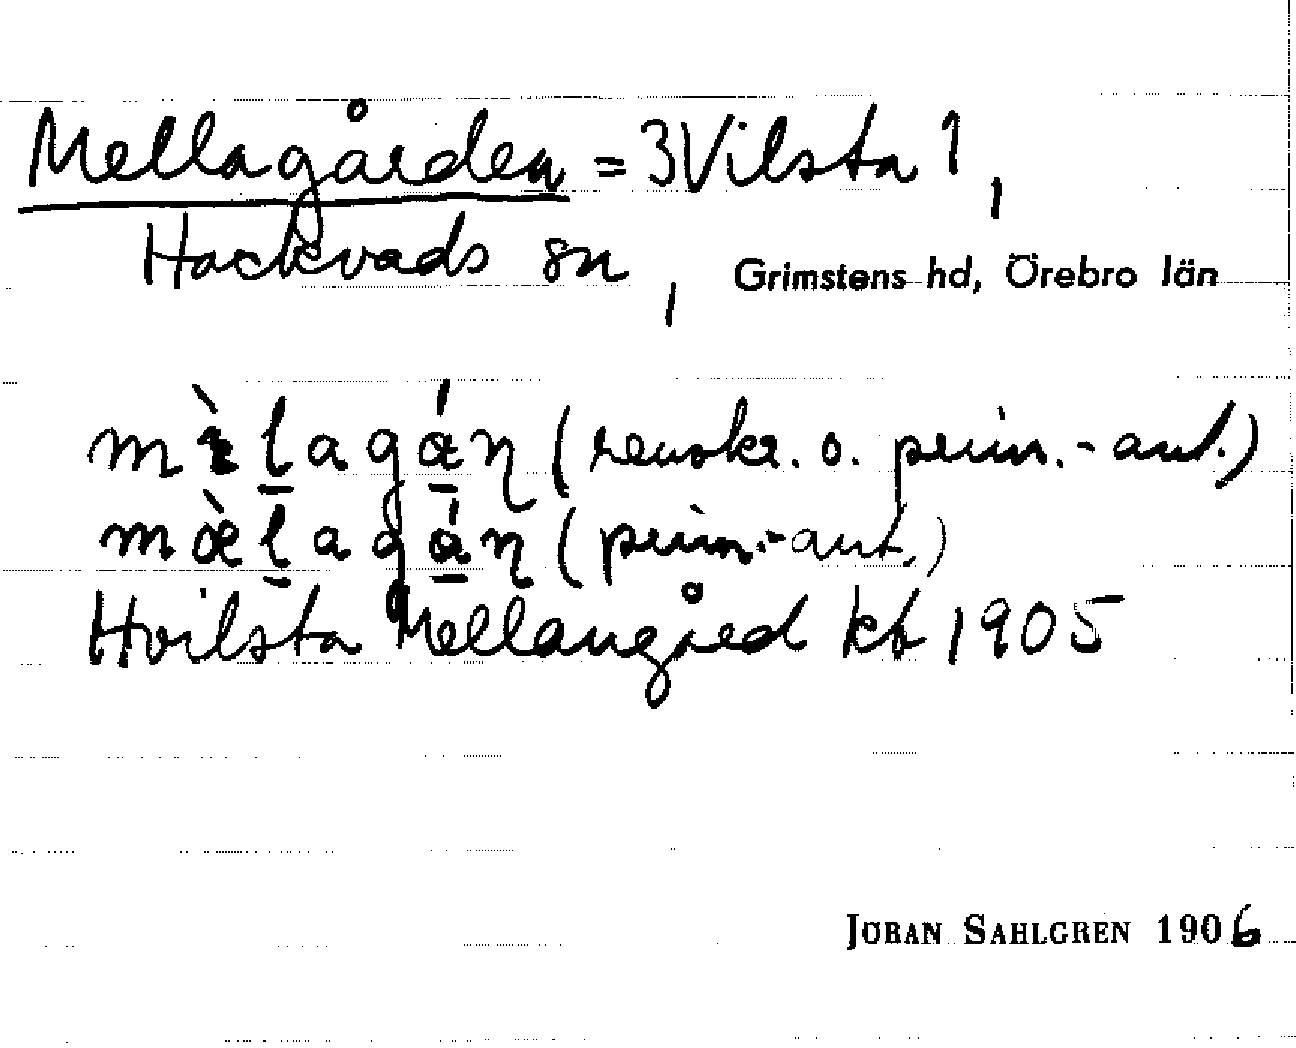 Mellagården = 3 Vilsta 1,
Hackvads sn, Grimstens hd, Örebro län
(renskr. o. prim.-ant.)
mæ̀lagán (prim.-ant.)
Hvilsta Mellangård kb 1905
JÖRAN SAHLGREN 1906